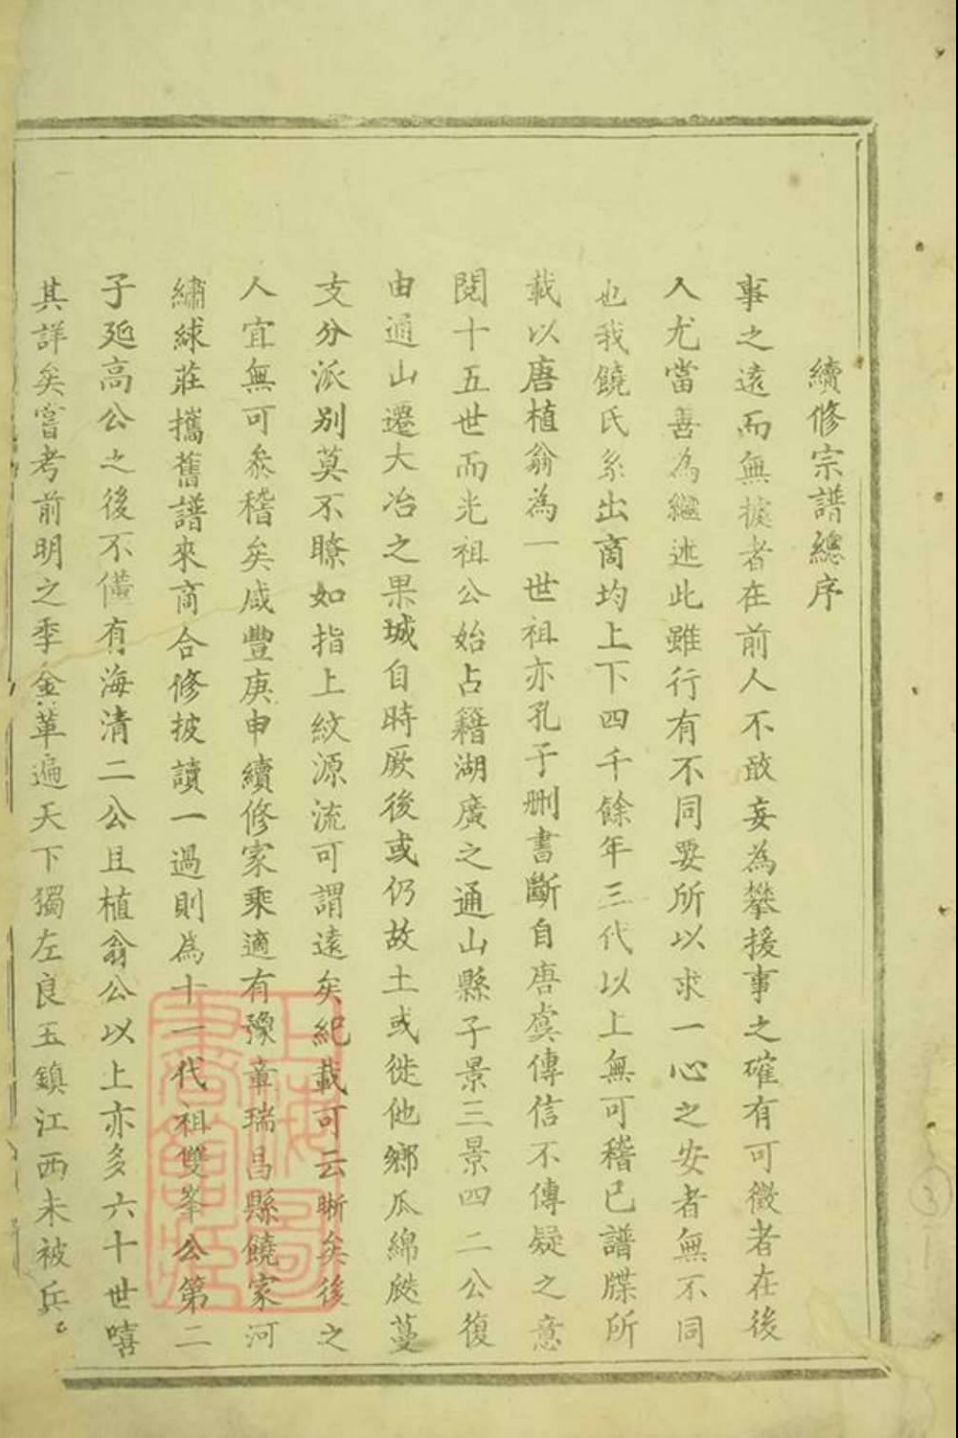 續修宗譜總序
事之遠而無據者在前人不敢妄為攀援事之確有可徵者在後
人尤當善為繼述此雖行有不同要所以求一心之安者無不同
也我饒氏系出商均上下四千餘年三代以上無可稽已譜牒所
載以唐植翁為一世祖亦孔子刪書斷自唐虞傳信不傳疑之意
閱十五世而光祖公始占籍湖廣之通山縣子景三景四二公復
由通山遷大冶之果城自時厥後或仍故土或徙他鄉瓜綿瓞蔓
支分派别莫不瞭如指上紋源流可謂遠矣紀載可云晰矣後之
人宜無可叅稽矣咸豐庚申續修家乘適有豫章瑞昌縣饒家河
繡球莊攜舊譜來商合修披讀一過則為十一代祖雙峯公第二
子延高公之後不僅有海清二公且植翁公以上亦多六十世嘻
其詳矣嘗考前明之季金革遍天下獨左良玉鎮江西未被兵
上海圖書館藏
3